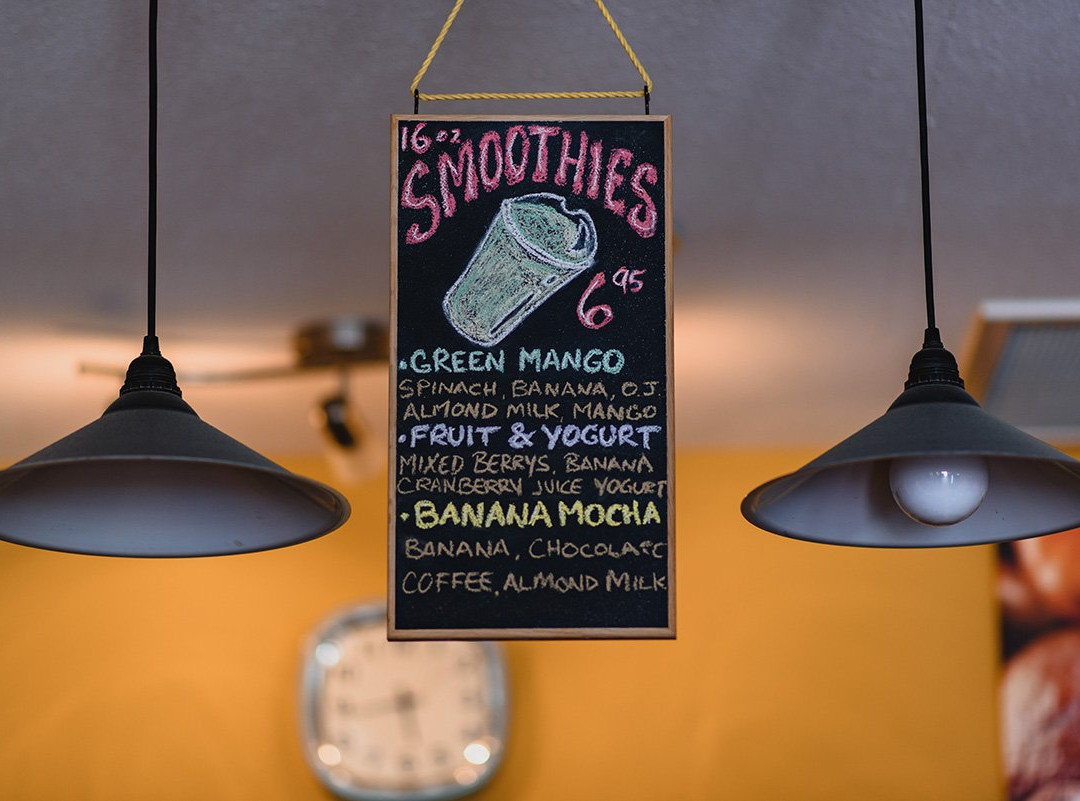 16 oz
SMOOTHIES
6 95
• GREEN MANGO
SPINACH, BANANA, O.J.
ALMOND MILK, MANGO
• FRUIT & YOGURT
MIXED BERRYS, BANANA
CRANBERRY JUICE YOGURT
• BANANA MOCHA
BANANA, CHOCOLATE
COFFEE, ALMOND MILK